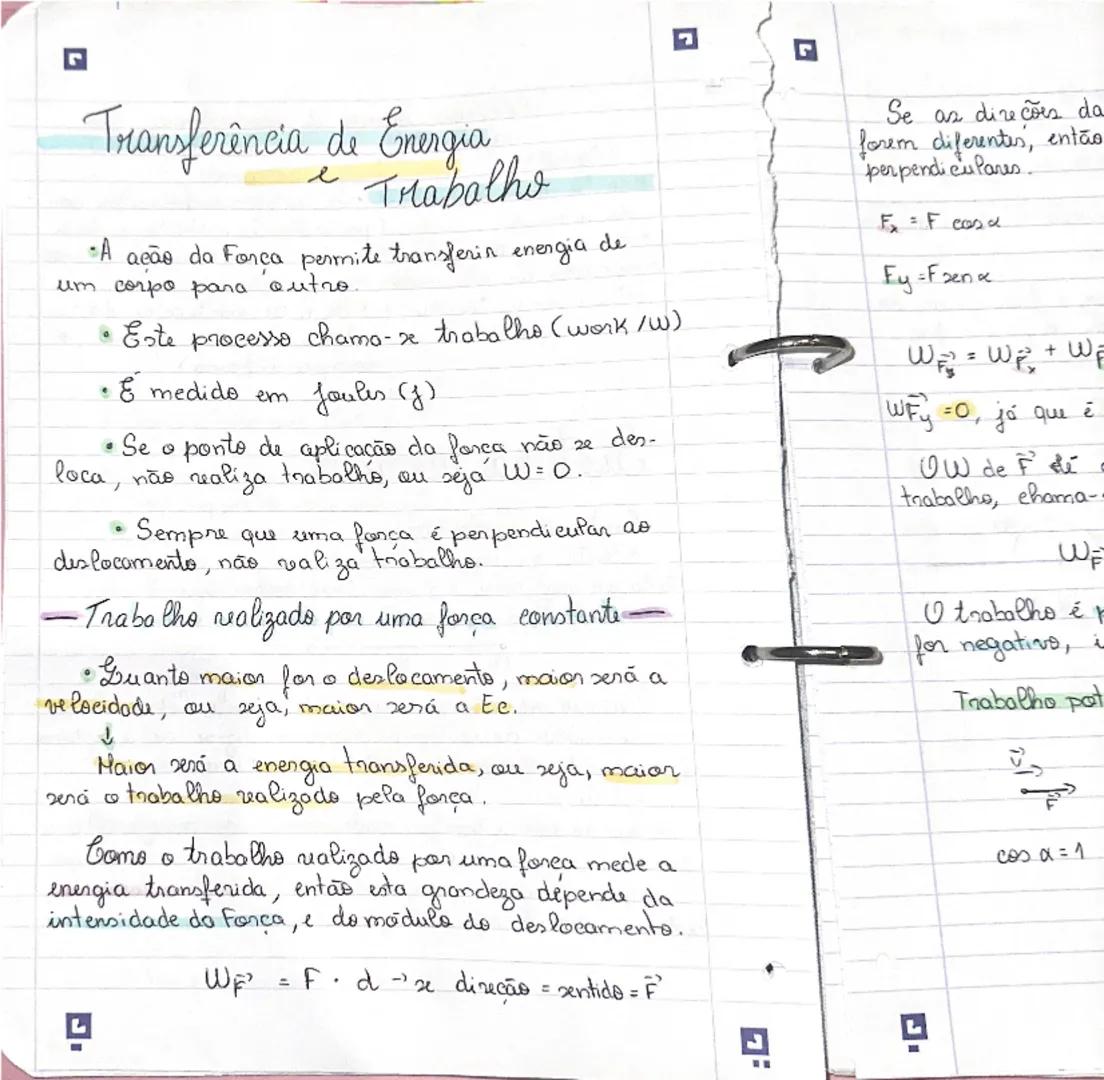 Transferência de Energia
e
Trabalho
•A ação da Força permite transferir energia de
um corpo para outro.
• Este processo chama-se trabalho (work /W)
• É medido em joules (j)
• Se o ponto de aplicação da força não se des-
loca, não realiza trabalho, ou seja W = 0.
• Sempre que uma força é perpendicular ao
deslocamento, não realiza trabalho.
— Trabalho realizado por uma força constante —
• Quanto maior for o deslocamento, maior será a
velocidade, ou seja, maior será a Ec.
↓
Maior será a energia transferida, ou seja, maior
será o trabalho realizado pela força.
Como o trabalho realizado por uma força mede a
energia transferida, então esta grandeza depende da
intensidade da Força, e do módulo do deslocamento.
WF⃗ = F . d → se direção = sentido = F⃗
Se as direções da
forem diferentes, então
perpendiculares.
Fx = F cos α
Fy = F sen α
WF⃗y = WF⃗x + WF
WF⃗y = 0, já que é
O W de F⃗
trabalho, chama-
WF⃗
O trabalho é
for negativo,
Trabalho pot
v⃗
F⃗
cos α = 1